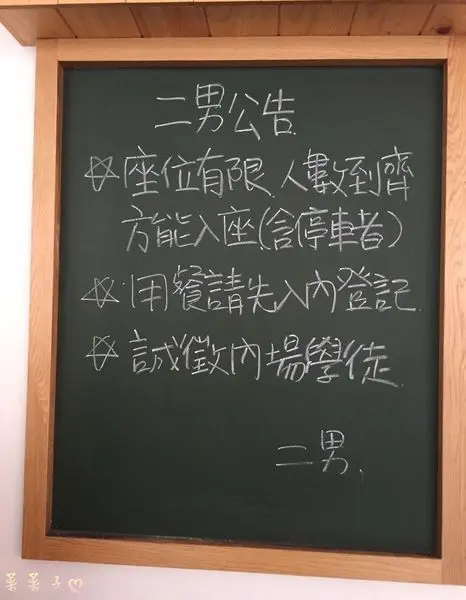 二男公告
☆座位有限.人數到齊
方能入座(含停車者)
☆用餐請先入內登記
☆誠徵內場學徒
二男.
菜菜子